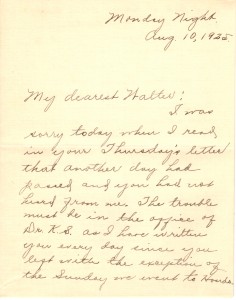 Monday Night.
Aug. 10, 1925
My dearest Walter;
I was
sorry today when I read
in your Thursday's letter
that another day had
passed and you had not
heard from me. The trouble
must be in the office of
Dr. K.S. as I have written
you every day since you
left with the exception of
the Sunday we went to